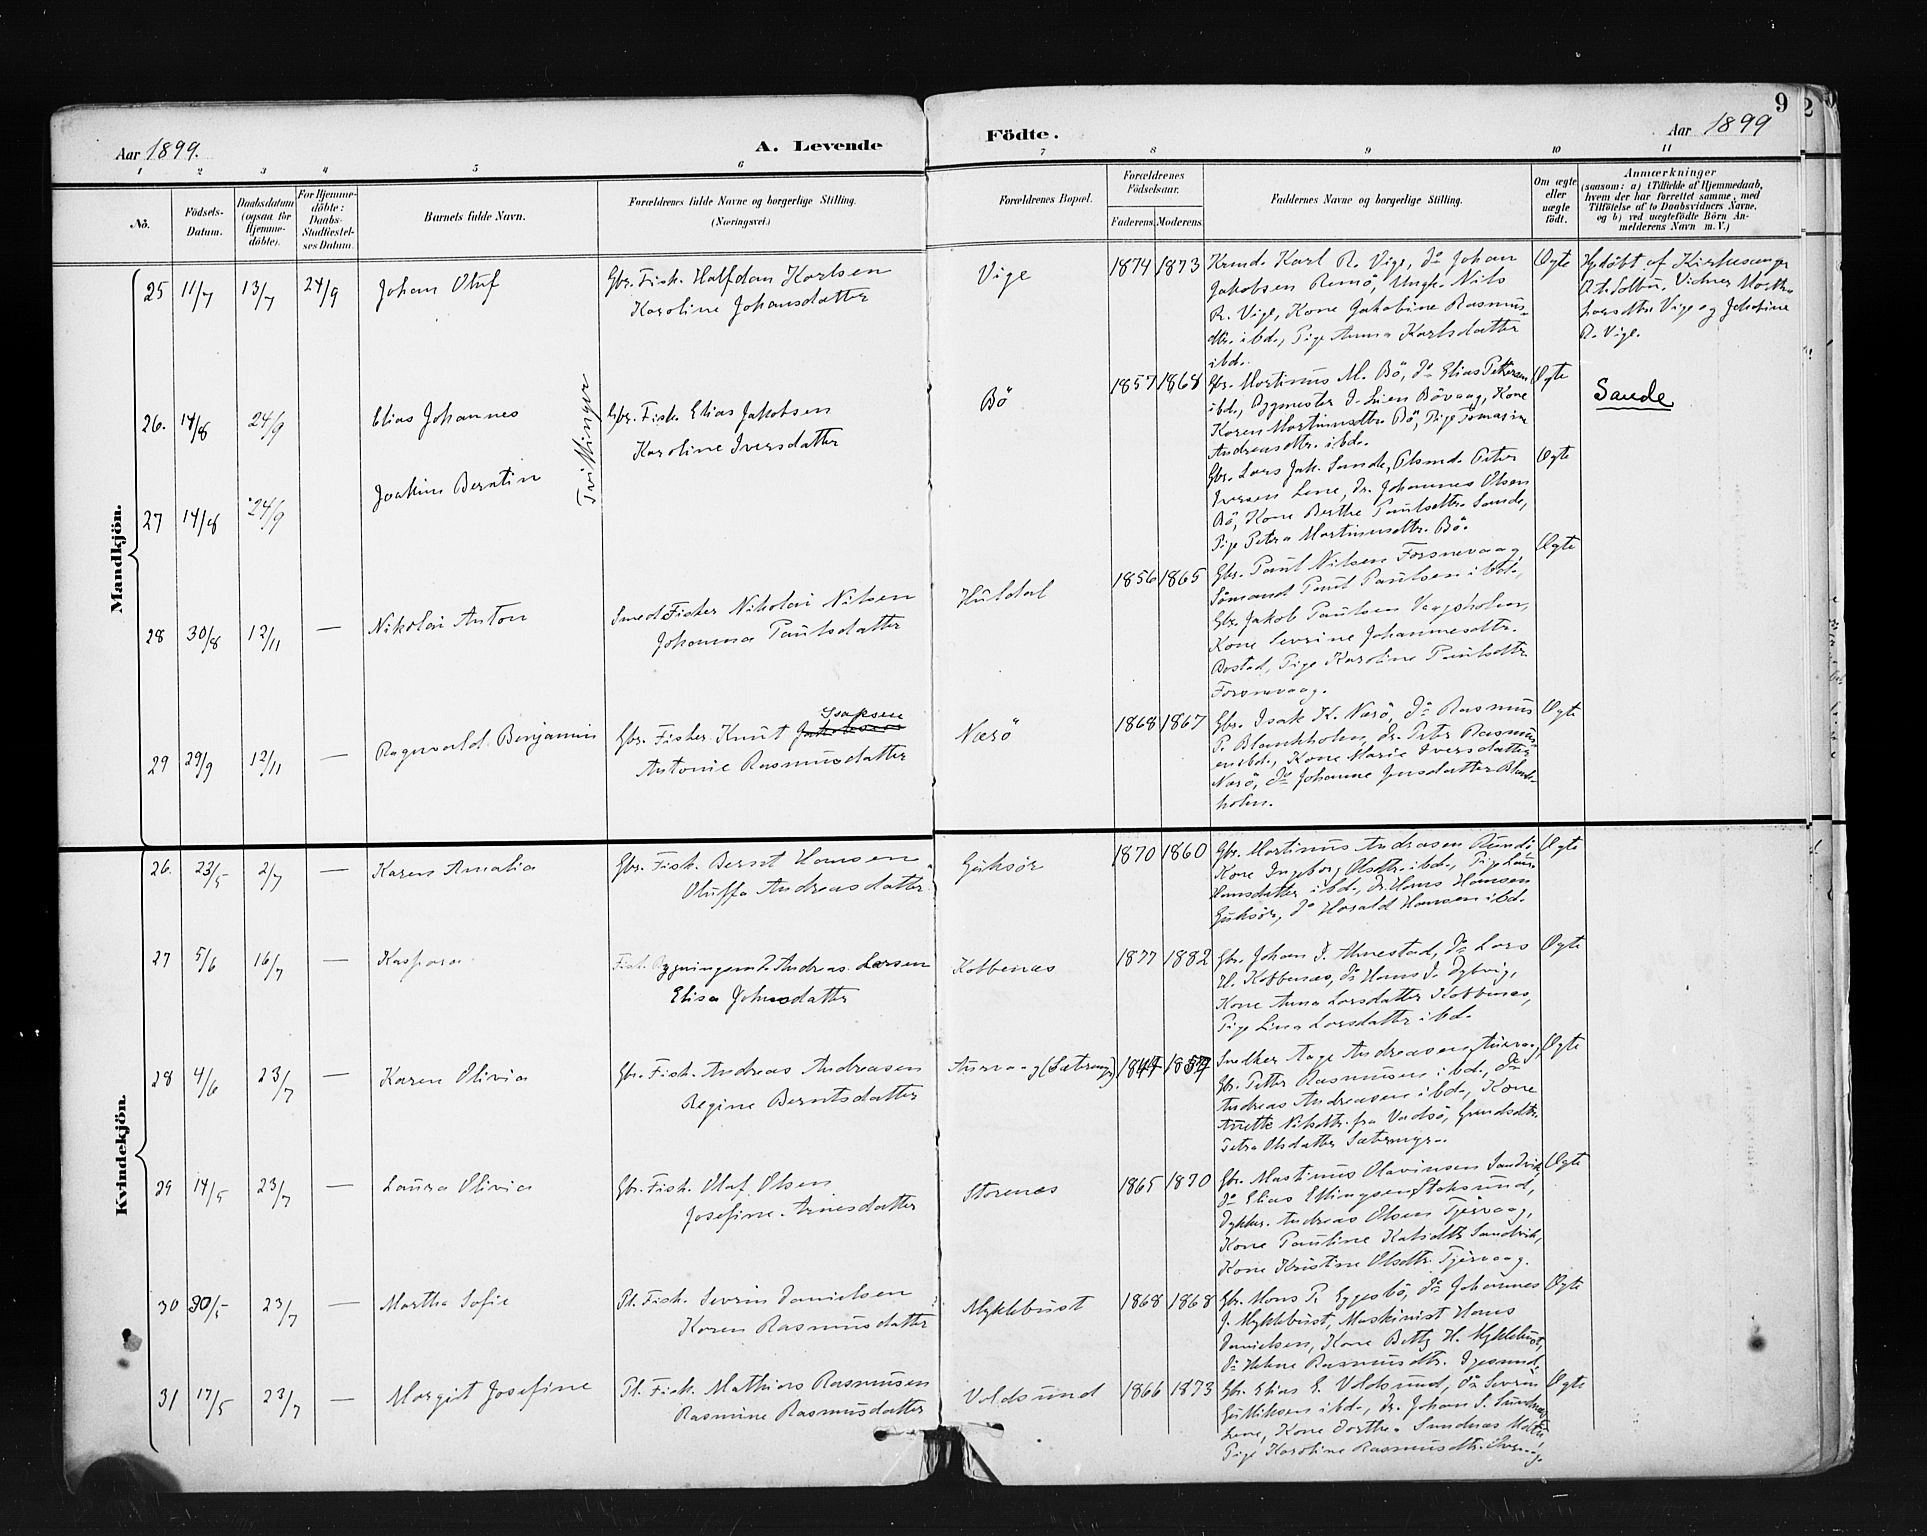 9
Aar 1899.
A. Levende
Födte.
Aar 1899
1 2 3 4 5 6 7 8 9 10 11
No.
Födsels-
Datum.
Daabsdatum
(ogsaa for
Hjemme-
döbte).
For Hjemme-
döbte:
Daabs-
Stadfæstel-
ses Datum.
Barnets fulde Navn.
Forældrenes fulde Navne og borgerlige Stilling.
(Næringsvei.)
Forældrenes Bopæl.
Forældrenes
Födselsaar.
Faderens. Moderens.
Faddernes Navne og borgerlige Stilling.
Om ægte
eller
uægte
födt.
Anmærkninger
(saasom: a) i Tilfælde af Hjemmedaab,
hvem der har forrettet samme, med
Tilföielse af to Daabsvidners Navne,
og b) ved uægtefödte Börn An-
melderens Navn m. V.)
Mandkjön.
25 11/7 13/7 24/9 Johan Oluf
Gbr. Fisk. Halfdan Karlsen
Karoline Johansdatter
Vige
1874 1873
Karl R. Vige, do Johan
Jakobsen Remö, Ungk. Nils
R. Vige, Kone Jakobine Rasmus-
dtr. ibd., Pige Anna Karlsdatter
ibd.
Ægte
Hjdöbt af Kirkesanger
Vidner
Vige og Josefine
R. Vige.
26. 14/8 24/9 Elias Johannes
Tvillinger
Gbr. Fisk. Elias Jakobsen
Karoline Iversdatter
Bö
1857 1868
Gbr. Martinus M. Bö, do Elias Pettersen
ibd., Bygmester Bövaag, Kone
Karen Martinusdtr. Bö, Pige
Andreasdtr. ibd.
Ægte
Sande
27 14/8 24/9 Joakim Berntin
Gbr. Lars Jak. Sande, Peter
Iversen Lene, do Johannes Olsen
Bö, Kone Berthe Paulsdtr. Sande,
Pige Petra Martinusdtr. Bö.
Ægte
28 30/8 12/11 — Nikolai Anton
Smed Fisker Nikolai Nilsen
Johanna Paulsdatter
Huldal
1856 1865
Gbr. Paul Nilsen Forsnevaag,
Sömand Paul Paulsen ibd.,
Gbr. Jakob Paulsen
Kone Severine Johannesdtr.
Bostad, Pige Karoline Paulsdtr.
Forsnevaag.
Ægte
29 29/9 12/11 — Ragnvald Benjamin
Isaksen
Gbr. Fisker Knut Jakobsen
Antonie Rasmusdatter
Nærö
1868 1867
Gbr. Isak K. Nærö, do Rasmus
P. Blankholm, do Peter Rasmus-
en ibd., Kone Marie Iversdatter
Nærö, do Johanne Jensdatter Blank-
holm.
Ægte
Kvindekjön.
26. 23/5 2/7 — Karen Amalia
Gbr. Fisk. Bernt Hansen
Oluffa Andreasdatter
Gjerksör
1870 1860
Gbr. Martinus Andreasen
Kone Ingeborg Olsdtr. ibd., Pige
Hansdatter ibd., do Hans Hansen
do Harald Hansen ibd.
Ægte
27 5/6 16/7 — Kaspara
Fisk. Bygningsm. Andreas Larsen
Elisa Johnsdatter
Kobbenæs
1877 1882
Gbr. Johan J. Almestad, do Lars
H. Kobbenæs, do Hans J. Dybvig,
Kone Anna Larsdatter Kobbenæs,
Pige Lina Larsdatter ibd.
Ægte
28 4/6 23/7 — Karen Olivia
Gbr. Fisk. Andreas Andreasen
Regine Berntsdatter
Aurvaag (Sætremyr)
1844 1854
Snedker Aage Andreasen Aurvaag,
Gbr. Petter Rasmusen ibd., do
Andreas Andreasen ibd., Kone
Anette Nilsdtr. fra Vadsö,
Petra Olsdatter Sætremyr.
Ægte
29 14/5 23/7 — Laura Olivia
Gbr. Fisk. Olaf Olsen
Josefine Arnesdatter
Storenæs
1865 1870
Gbr. Mastinus Olavinsen Sandvik,
do Elias Ellingsen Stoksund,
Dykker Andreas Olsen Tjervaag,
Kone Pauline Sandvik,
Kone Kristine Olsdtr. Tjervaag.
Ægte
30 30/5 23/7 — Martha Sofie
Pl. Fisk. Severin Danielsen
Karen Rasmusdatter
Myklebust
1868 1868
Gbr. Mons P. Eggesbö, do Johannes
J. Myklebust, Maskinist Hans
Danielsen, Kone Betty H. Myklebust,
do Helene Rasmusdtr.
Ægte
31 17/5 23/7 — Margit Josefine
Pl. Fisk. Mathias Rasmusen
Rasmine Rasmusdatter
Voldsund
1866 1873
Gbr. Elias E. Voldsund, do Severin
ibd., do Johan S.
Lene, Kone Dorthea
Pige Karoline Rasmusdtr.
Ægte